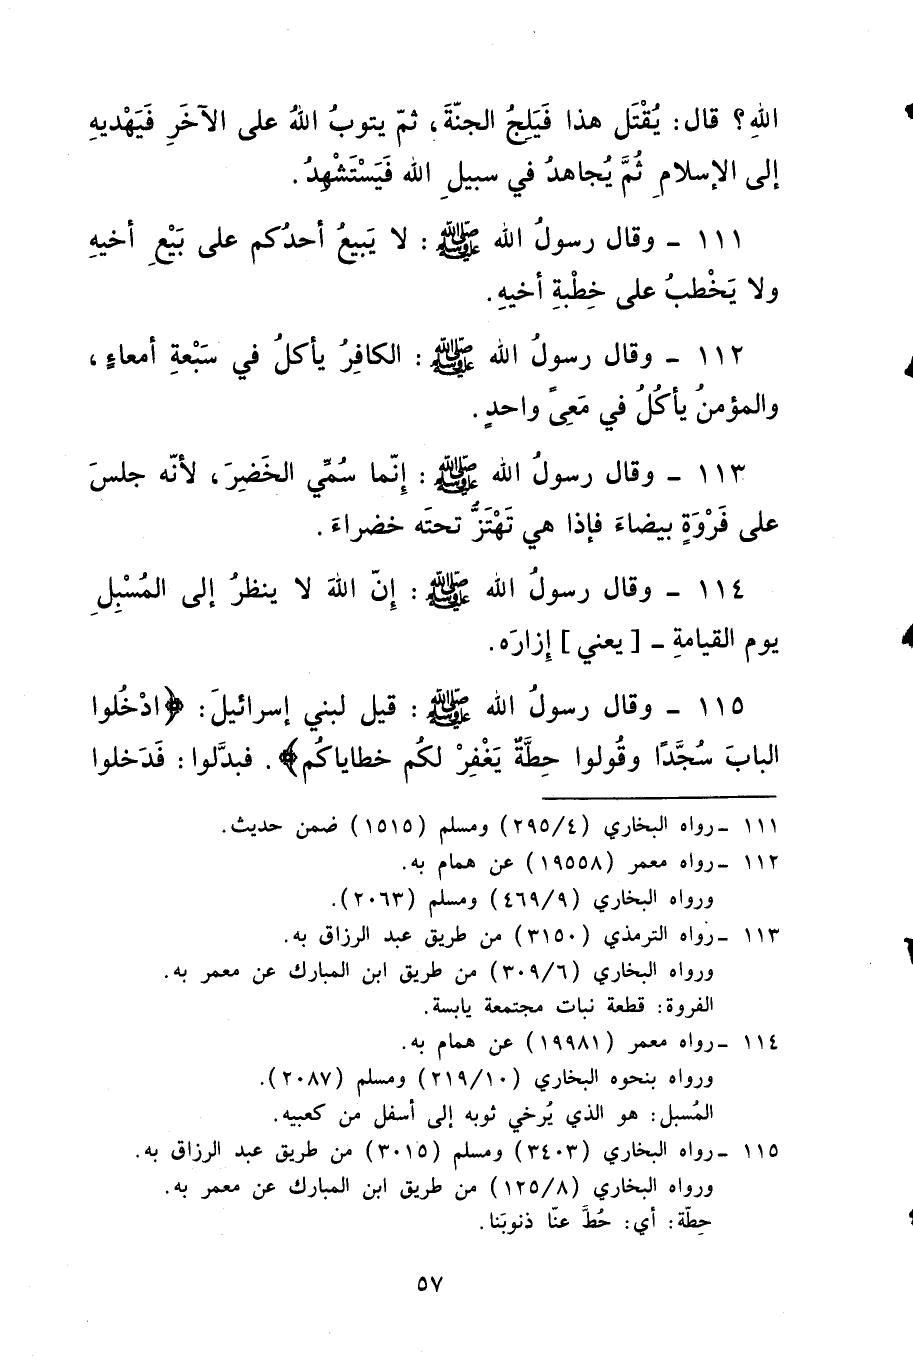 اللهِ؟ قال: يُقْتَل هذا فَيَلِجُ الجنّةَ، ثمّ يتوبُ اللهُ على الآخَرِ فَيَهْديهِ
إلى الإسلامِ ثُمَّ يُجاهدُ في سبيلِ الله فَيَسْتَشْهِدُ.
١١١ - وقال رسولُ الله ﷺ: لا يَبيعُ أحدُكم على بَيْعِ أخيهِ
ولا يَخْطبُ على خِطْبةِ أخيهِ.
١١٢ - وقال رسولُ الله ﷺ: الكافِرُ يأكلُ في سَبْعةِ أمعاءٍ،
والمؤمنُ يأكُلُ في مَعِىً واحدٍ.
١١٣ - وقال رسولُ الله ﷺ: إِنّما سُمِّي الخَضِرَ، لأنّه جلسَ
على فَرْوَةٍ بيضاءَ فإذا هي تَهْتَزُّ تحتَه خضراءَ.
١١٤ - وقال رسولُ الله ﷺ: إِنّ اللهَ لا ينظرُ إلى المُسْبِلِ
يوم القيامةِ - [يعني] إِزارَه.
١١٥ - وقال رسولُ الله ﷺ: قيل لبني إسرائيلَ: ﴿ادْخُلوا
البابَ سُجَّدًا وقُولوا حِطَّةٌ يَغْفِرْ لكُم خطاياكُم﴾. فبدَّلوا: فَدَخلوا
١١١ - رواه البخاري (٢٩٥/٤) ومسلم (١٥١٥) ضمن حديث.
١١٢ - رواه معمر (١٩٥٥٨) عن همام به.
ورواه البخاري (٤٦٩/٩) ومسلم (٢٠٦٣).
١١٣ - رواه الترمذي (٣١٥٠) من طريق عبد الرزاق به.
ورواه البخاري (٣٠٩/٦) من طريق ابن المبارك عن معمر به.
الفروة: قطعة نبات مجتمعة يابسة.
١١٤ - رواه معمر (١٩٩٨١) عن همام به.
ورواه بنحوه البخاري (٢١٩/١٠) ومسلم (٢٠٨٧).
المُسبل: هو الذي يُرخي ثوبه إلى أسفل من كعبيه.
١١٥ - رواه البخاري (٣٤٠٣) ومسلم (٣٠١٥) من طريق عبد الرزاق به.
ورواه البخاري (١٢٥/٨) من طريق ابن المبارك عن معمر به.
حِطّة: أي: حُطَّ عنّا ذنوبَنا.
٥٧